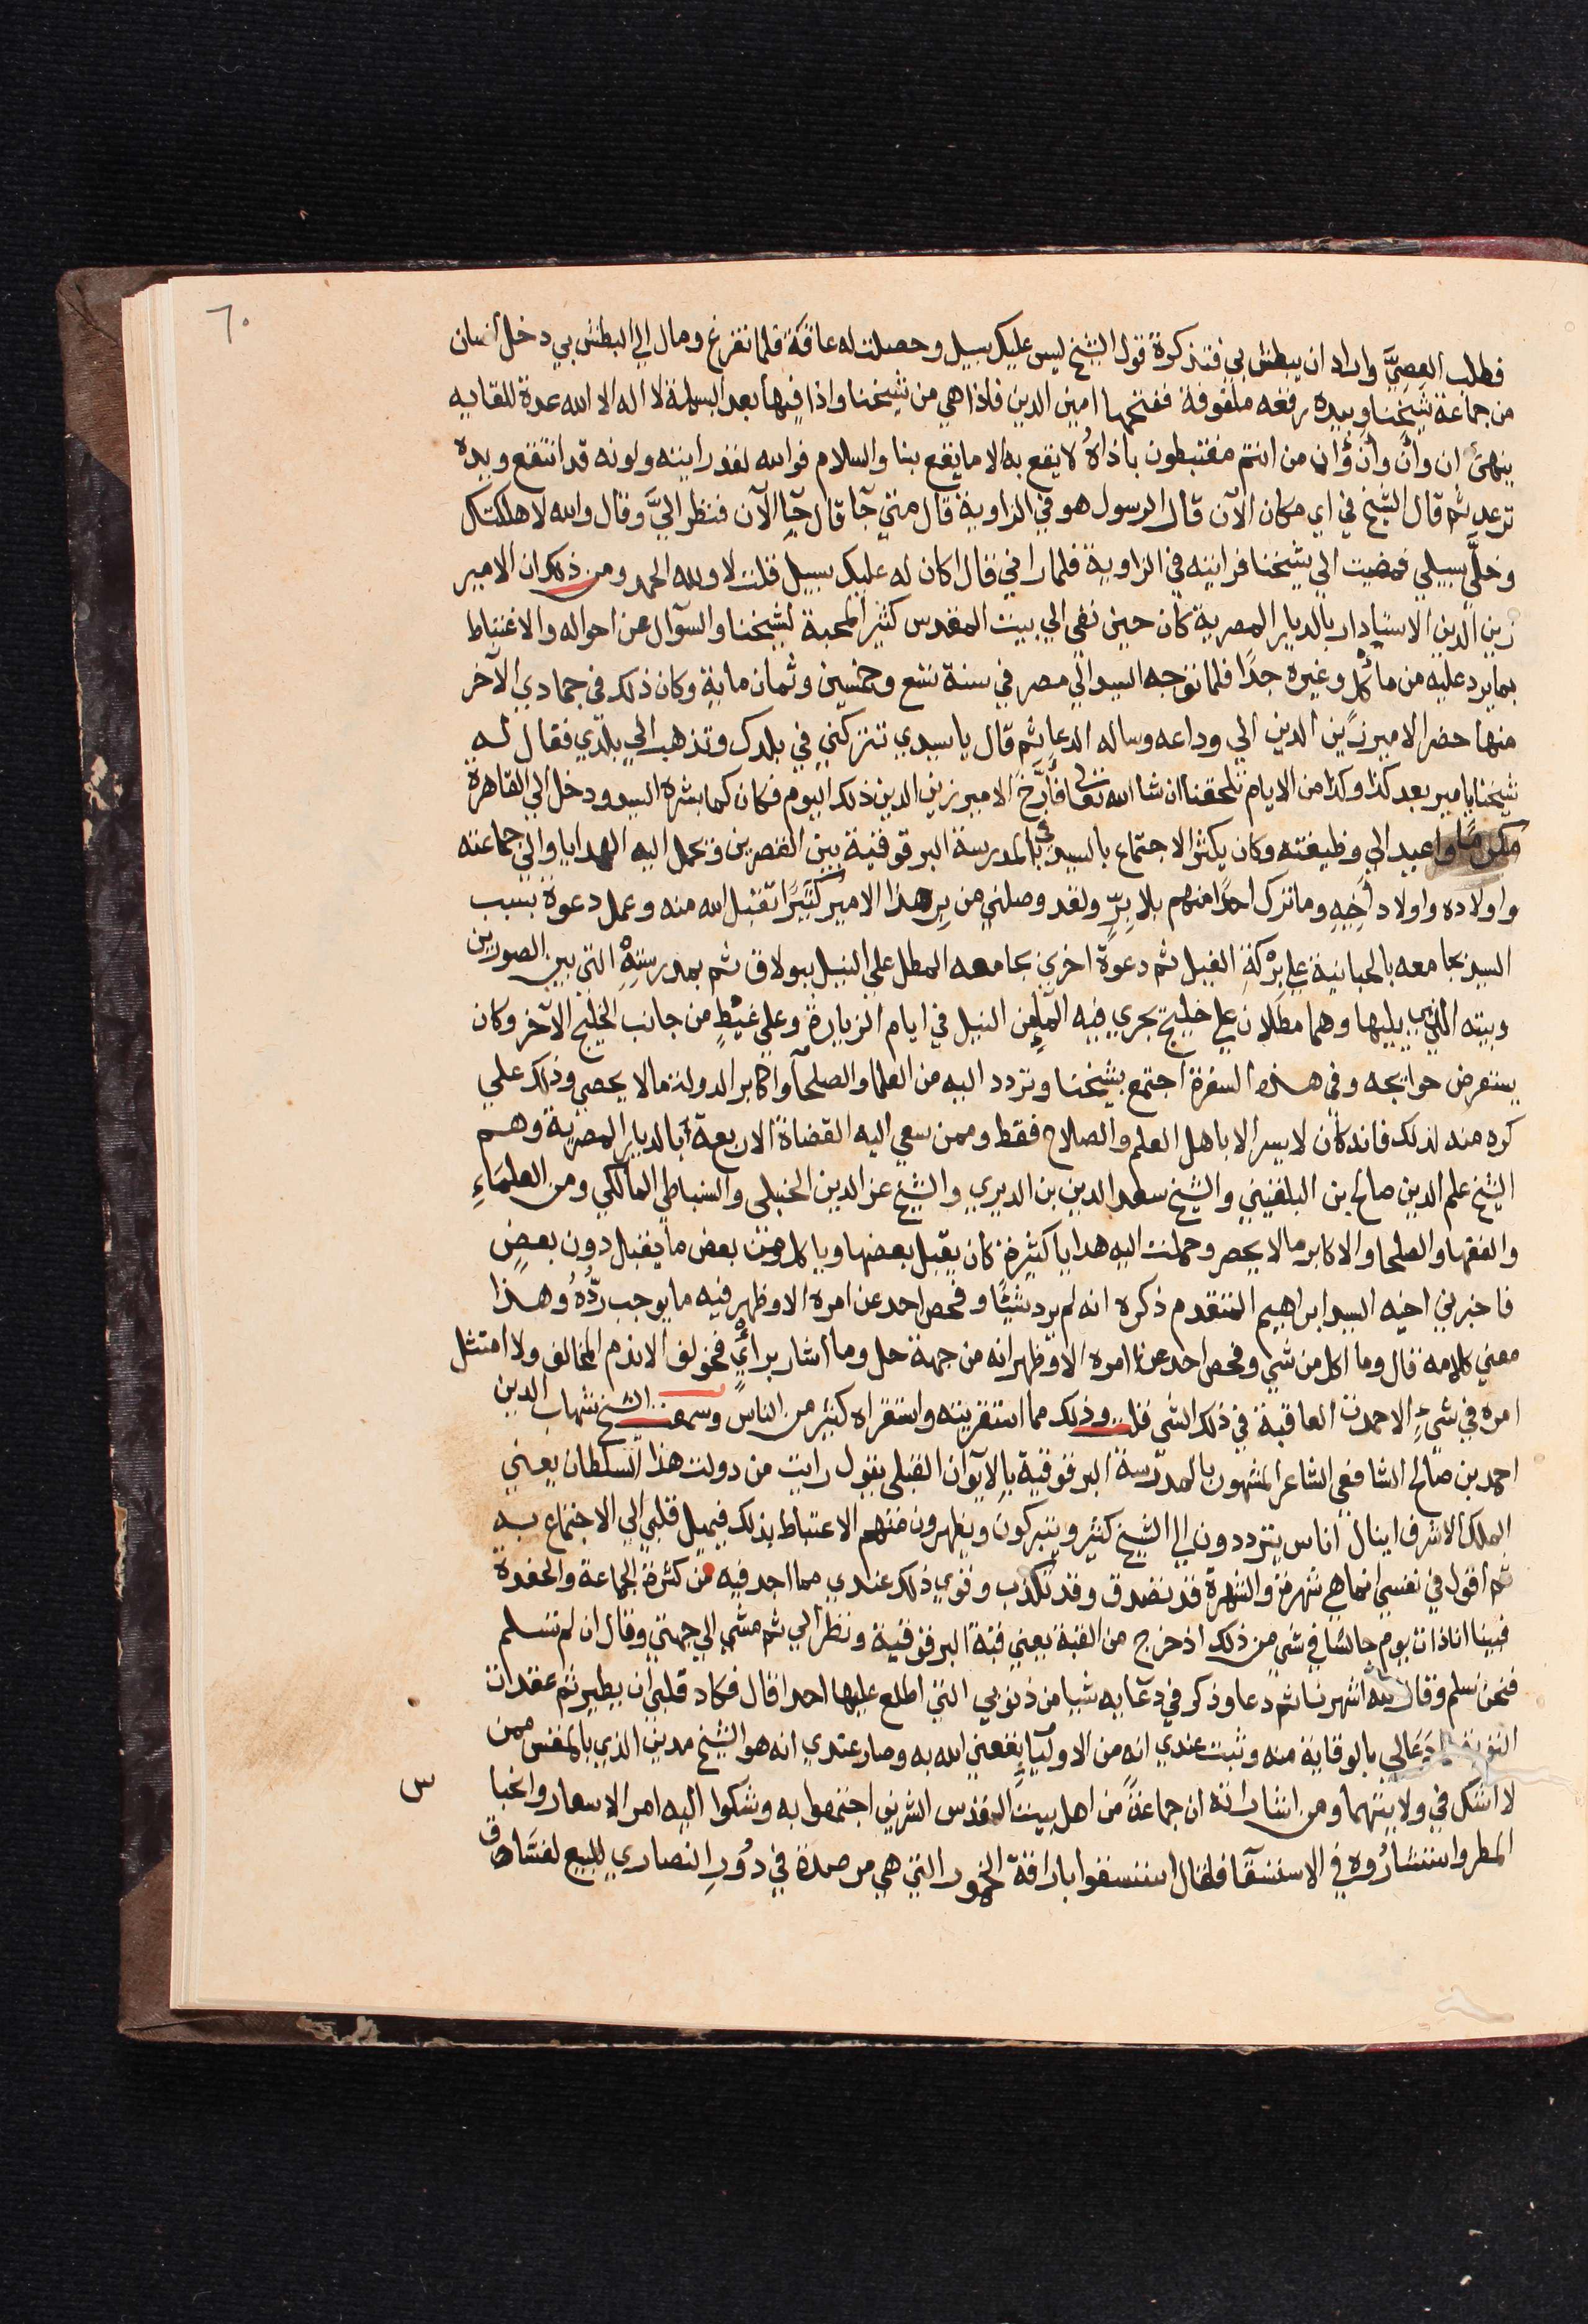 ٦٠
فطلب العصيَّ واراد ان يبطش بي فتذكرة قول الشيخ ليس عليك سبيل وحصلت له عاقة فلما تفرغ ومال الي البطش بي دخل انسان
من جماعة شيخنا وبيده رقعه ملفوفة ففتحها امين الدين فاذا هي من شيخنا واذا فيها بعد البسملة لا اله الا الله عدة للقايه
ينهى ان وان وان وان من انتم مغتبطون باذاهُ لا يقع به الا ما يقع بنا والسلام فوالله لقد رايته ولونه قد انتقع ويده
ترعد ثم قال الشيخ في اي مكان الآن قال الرسول هو في الزاوية قال متي جا قال جآ الآن فنظر اليَّ وقال والله لاهلكتك
وخلَّي سبيلي فمضيت الي شيخنا فرايته في الزاوية فلما راني قال اكان له عليك سبيل قلت لا ولله الحمد ومن ذلك ان الامير
زين الدين الاستادار بالديار المصرية كان حين نفي الي بيت المقدس كثير المحبة لشيخنا والسوآل عن احواله والاغتباط
بما يرد عليه من مأكل وغيره جدًا فلما توجه السيد الي مصر في سنة تسع وخمسين وثمان ماية وكان ذلك في جمادي الآخر
منها حضر الامير زين الدين الي وداعه وساله الدعا ثم قال يا سيدي تتركني في بلدك وتذهب الي بلدي فقال له
شيخنا يا مير بعد كذا وكذا من الايام تلحقنا ان شا الله تعالي فأرَّخَ الامير زين الدين ذلك اليوم فكان كما بشره السيد ودخل الي القاهرة
مكرما واعيد الي وظيفته وكان يكثر الاجتماع بالسيد في بالمدرسة البرقوقية بين القصرين وتحمل اليه الهدايا والي جماعته
واولاده واولاد اخِيهِ وما ترك احدًا منهم بلا بِرٍّ ولقد وصلني من بر هذا الامير كثيرًا تقبل الله منه وعمل دعوة بسبب
السيد بجامعه بالحبانية علي بِرْكَةِ الفيل ثم دعوةً اخري بجامعه المطل علي النيل ببولاق ثم بمدرستِهِ التي بين الصورين
وبيته الذي يليها وهما مطلان علي خليج يجري فيه المآء من النيل في ايام الزيارة وعلي غيْطٍ من جانب الخليج الآخر وكان
يستعرض حوايجه وفي هذه السفرة اجتمع بشيخنا وتردد اليه من العلما والصلحآ واكابر الدولة ما لا يحصي وذلك علي
كره منه لذلك فانه كان لا يسر الا باهل العلم والصلاح فقط وممن سعي اليه القضاة الاربعة بالديار المصرية وهم
الشيخ علم الدين صالح بن البلقيني والشيخ سعد الدين بن الديري والشيخ عز الدين الحنبلي والسنباطي المالكي ومن العلمَاءِ
والفقها والصلحا والاكابر ما لا يحصر وحملت اليه هدايا كثيرة كان يقبل بعضها وياكل من بعض ما يقبل دون بعضٍ
فاخبرني اخيه السيد ابراهيم المتقدم ذكره انه لم يرد شيئًا وفحص احد عن امره الا وظهر فيه ما يوجب ردُّهُ وهذا
معني كلامه قال وما اكل من شي وفحص احد عن امره الا وظهر انه من جهة حل وما اشار برأي فخولف الا ندم المخالف ولا امتثل
امره في شيءٍ الا حمدت العاقبة في ذلك الشي قلت وذلك مما استقريته واستقراه كثير من الناس وسمعت الشيخ شهاب الدين
احمد بن صالح الشافعي الشاعر المشهور بالمدرسة البرقوقية بالايوان القبلي يقول رايت من دولت هذا السلطان يعني
الملك الاشرف اينال اناس يترددون الي الشيخ كثير ويتبركون ويظهرون منهم الاغتباط بذلك فيميل قلبي الي الاجتماع به
ثم اقول في نفسي انما هي شهرة والشهرة قد تصدق وقد تكذب وقوي ذلك عندي مما اجد فيه من كثرة الجماعة والحفدة
فبينا انا ذات يوم جالسًا في شي من ذلك اذ خرج من القبة يعني قبة البرقوقية ونظر الي ثم مشي الي جهتي وقال ان لم تسلم
فنحن نسلم وقال لله اشهرنا ثم دعا وذكر في دعآيه شيا من ذنوبي التي اطلع عليها احدا قال فكاد قلبي ان يطير ثم عقدت
التوبة ودعا لي بالوقاية منه وثبت عندي انه من الاوليآ نفعني الله به وصار عندي انه هو الشيخ مدين الذي بالمقس ممن
لا اشك في ولايتهما ومن اشاراته ان جماعةً من اهل بيت المقدس الشريف اجتمعوا به وشكوا اليه امر الاسعار وانحبا
س
المطر واستشارُوه في الاستسقآ فقال استسقوا باراقة الخمور التي هي مرصدة في دُورِ النصاري للبيع لفسَّاق